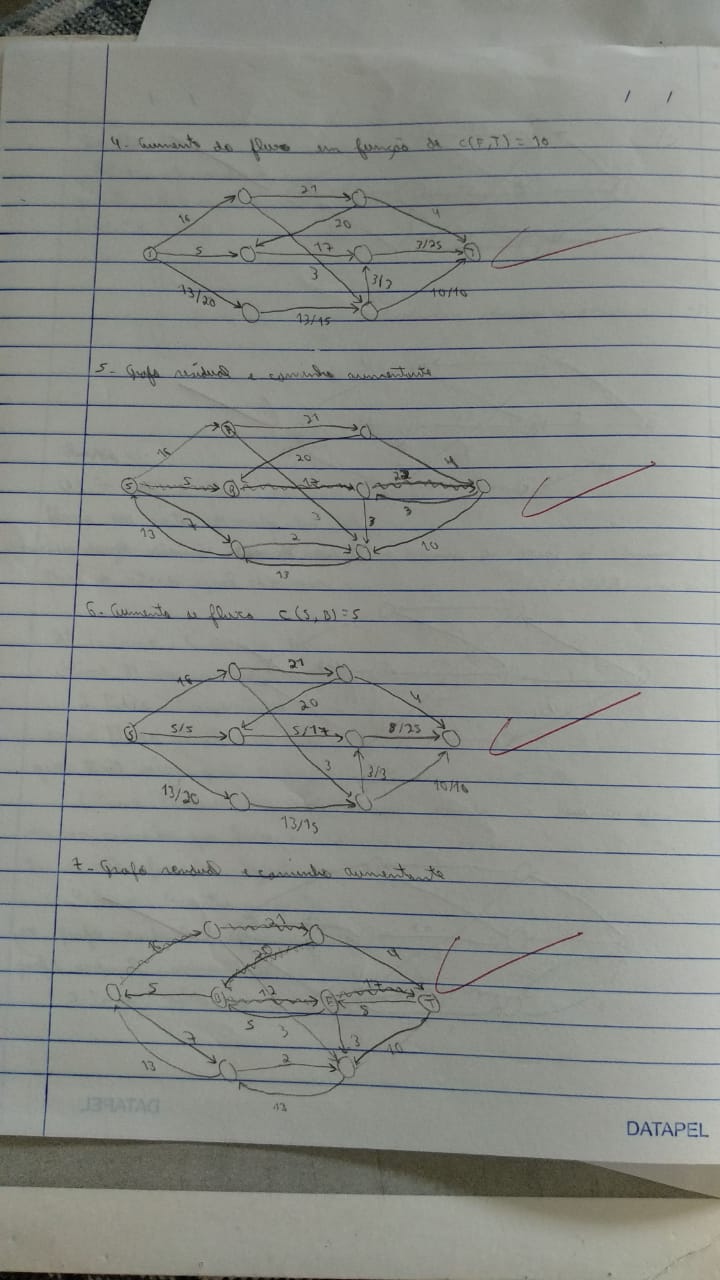 4- Aumento do fluxo em função de C(F,T) = 10
21
16
20
4
5
17
3/25
T
3
3/3
13/20
10/10
13/15
5- Grafo residual e caminho aumentante
A
21
16
20
4
S
5
B
17
22
3
3
3
7
13
2
10
13
6- Aumento de fluxo C(S,B)=5
21
16
20
4
S
5/5
5/17
8/25
3
3/3
13/20
10/10
13/15
7- Grafo residual e caminho aumentante
21
16
20
4
5
12
17
T
5
5
3
3
7
10
13
2
13
DATAPEL